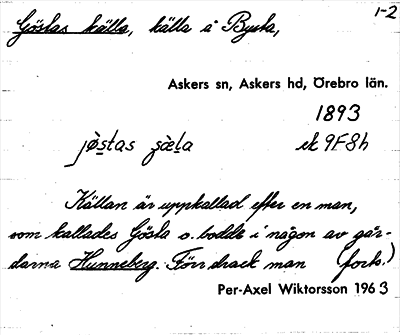 Göstas källa, källa å Bysta, 1-2
Askers sn, Askers hd, Örebro län.
1893
jø̀stas ʒæ̀la ek 9F8h
Källan är uppkallad efter en man,
som kallades Gösta o. bodde i någon av går-
darna Hunneberg. Förr drack man (forts.)
Per-Axel Wiktorsson 1963